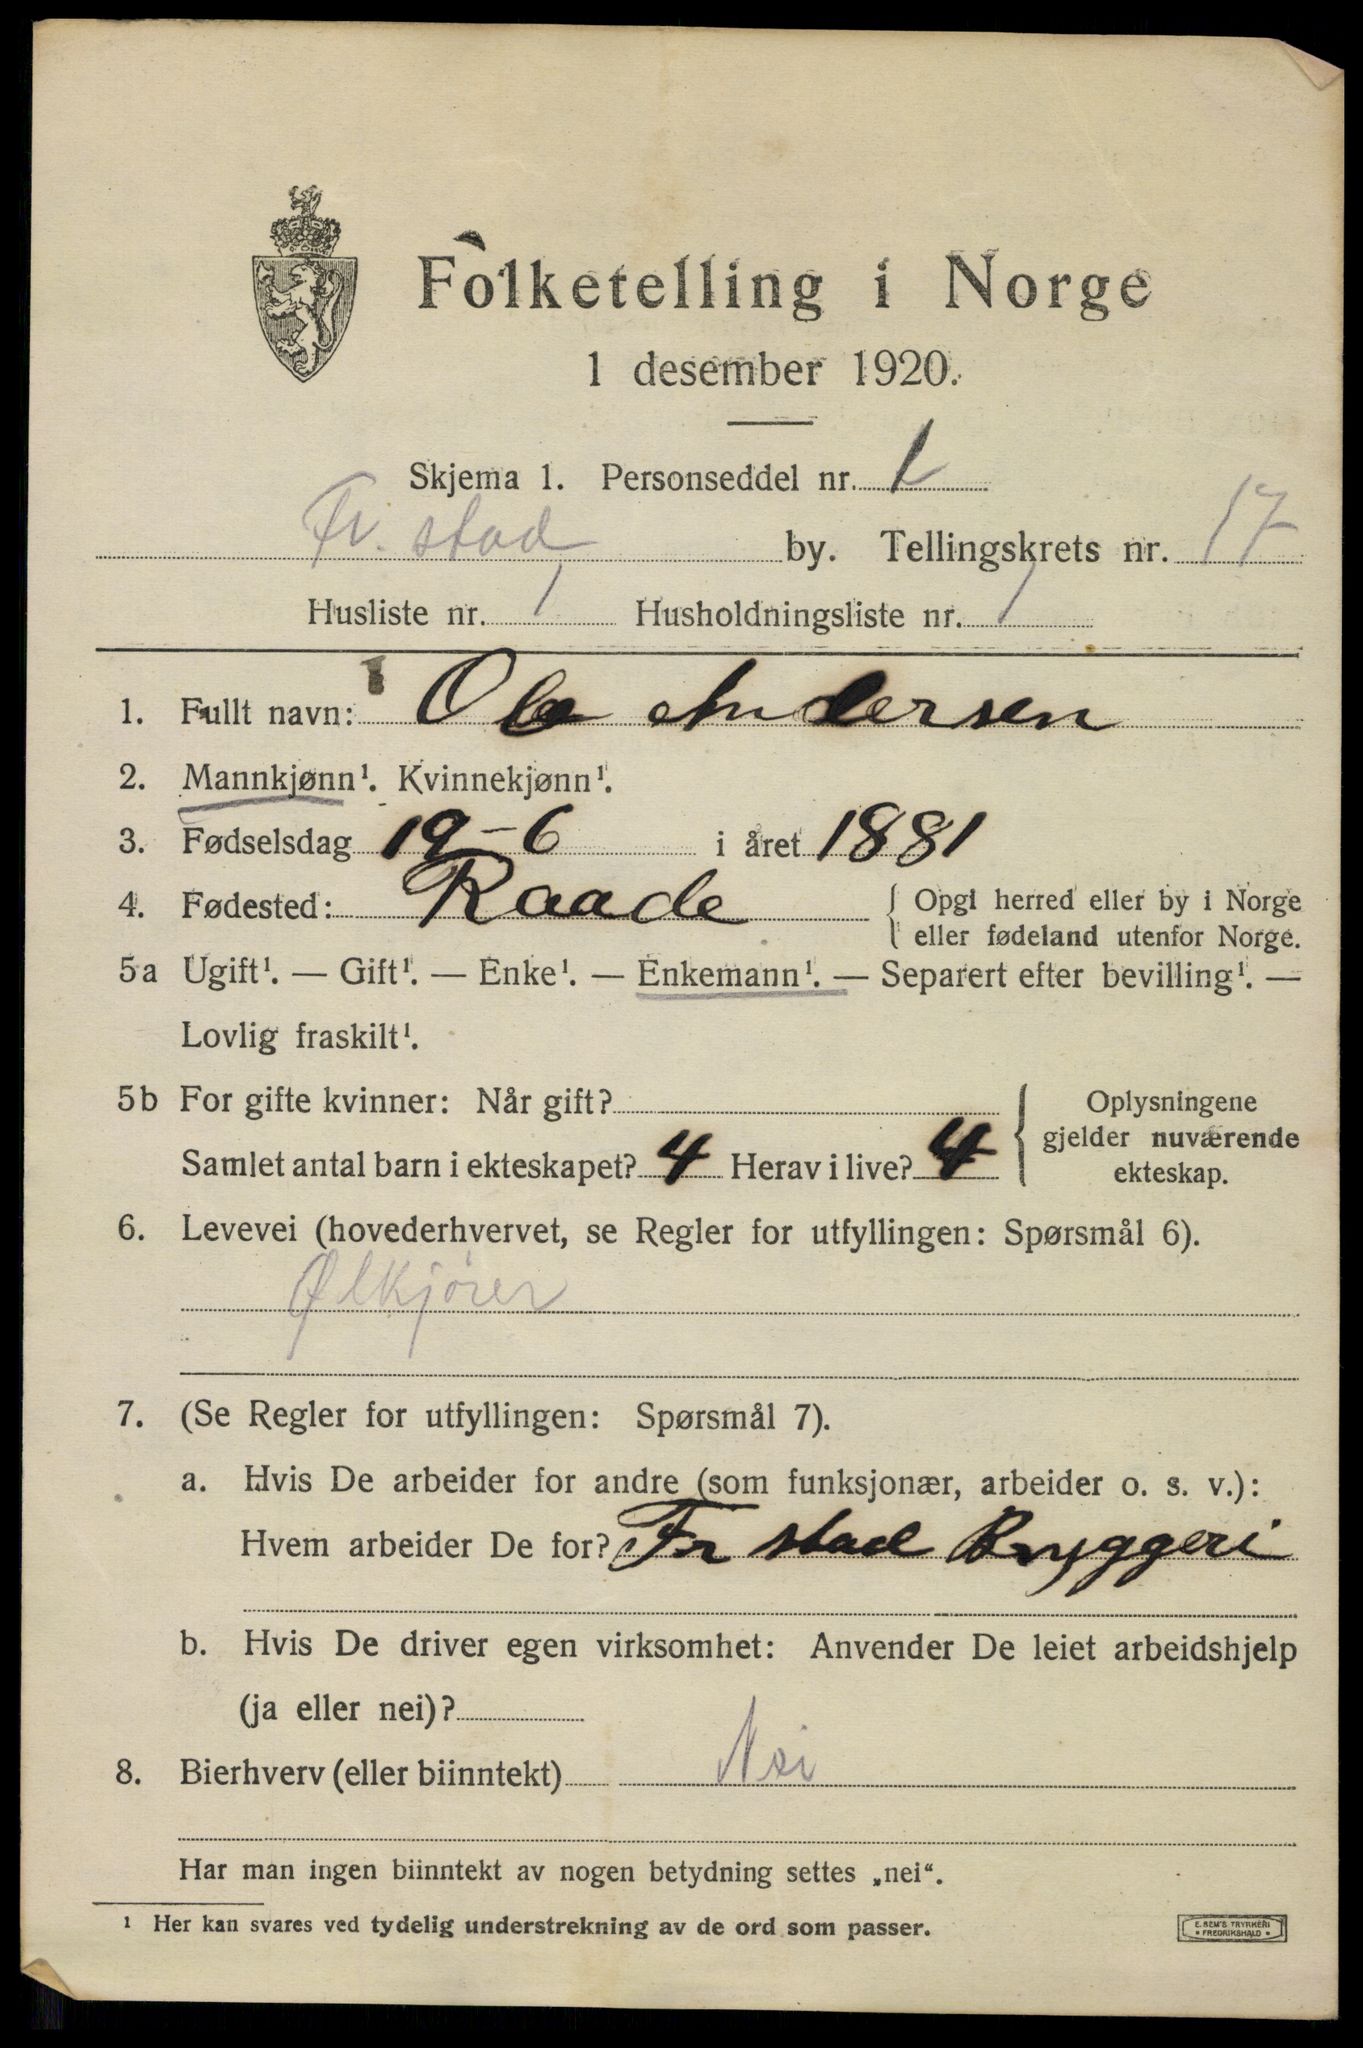 Folketelling i Norge
1 desember 1920.
Skjema 1. Personseddel nr. 1
Fr. stad by. Tellingskrets nr. 17
Husliste nr. 1 Husholdningsliste nr. 1
1. Fullt navn: Ole Andersen
2. Mannkjønn¹. Kvinnekjønn¹.
3. Fødselsdag 19-6 i året 1881
4. Fødested: Raade { Opgi herred eller by i Norge
eller fødeland utenfor Norge.
5a Ugift¹. — Gift¹. — Enke¹. — Enkemann¹. — Separert efter bevilling¹. —
Lovlig fraskilt¹.
5b For gifte kvinner: Når gift?
Samlet antal barn i ekteskapet? 4 Herav i live? 4
{ Oplysningene
gjelder nuværende
ekteskap.
6. Levevei (hovederhvervet, se Regler for utfyllingen: Spørsmål 6).
Ølkjörer
7. (Se Regler for utfyllingen: Spørsmål 7).
a. Hvis De arbeider for andre (som funksjonær, arbeider o. s. v.):
Hvem arbeider De for? Fr stad Bryggeri
b. Hvis De driver egen virksomhet: Anvender De leiet arbeidshjelp
(ja eller nei)?
8. Bierhverv (eller biinntekt) Nei
Har man ingen biinntekt av nogen betydning settes „nei“.
¹ Her kan svares ved tydelig understrekning av de ord som passer.
E. SEM'S TRYKKERI
• FREDRIKSHALD •